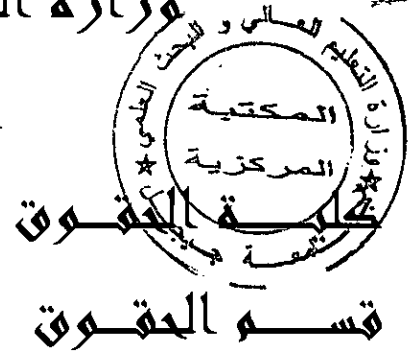 وزارة
وزارة التعليم العالي و البحث العلمي
المكتبة
المركزية
جامعة جيجل
كليــة الحقــوق
قســم الحقــوق